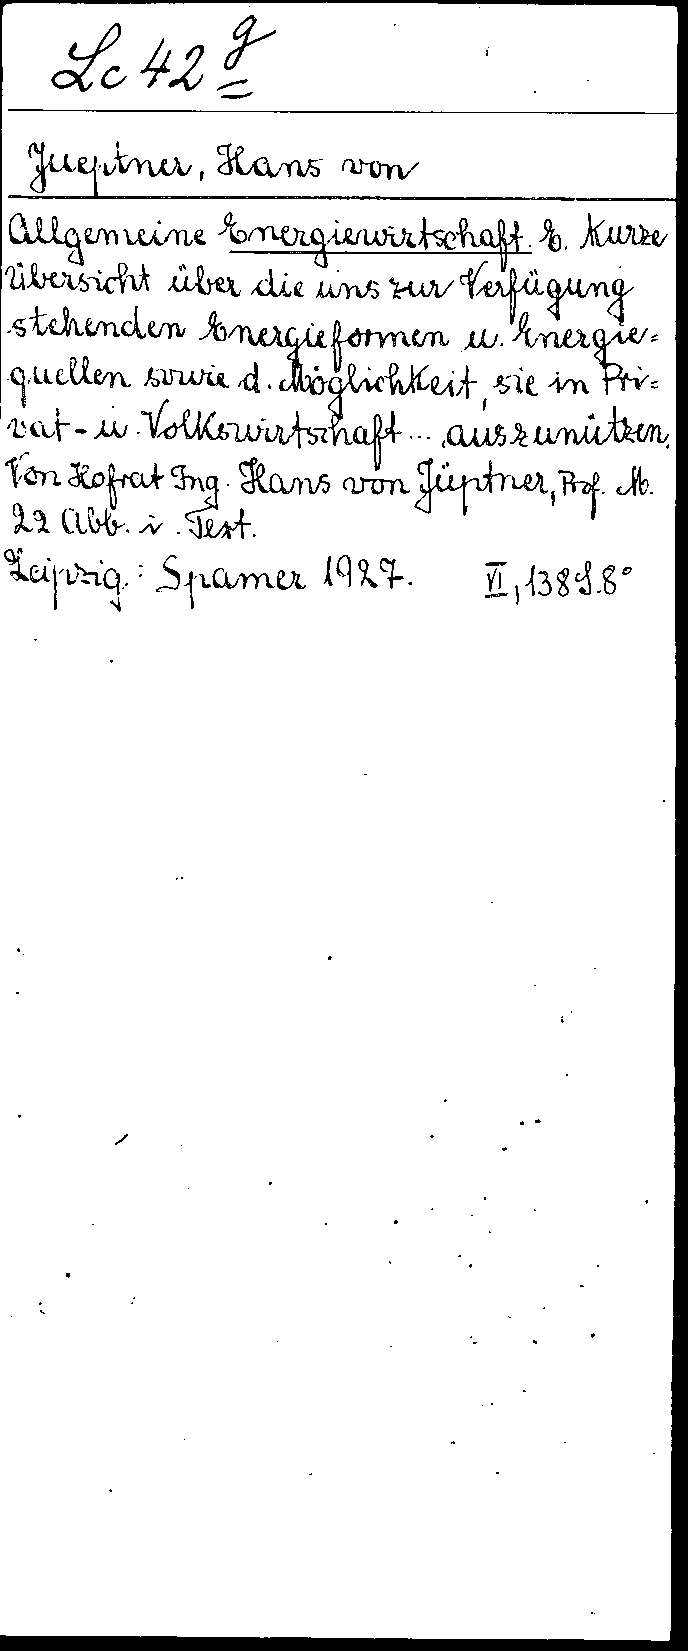 Lc 42 g
Jueptner, Hans von
Allgemeine Energiewirtschaft. E. kurze
Übersicht über die uns zur Verfügung
stehenden Energieformen u. Energie=
quellen sowie d. Möglichkeit, sie in Pri=
vat- u. Volkswirtschaft ... auszunützen.
Von Hofrat Ing. Hans von Jüptner, Prof. M.
22 Abb. i. Text.
Leipzig: Spamer 1927. VI, 138 S. 8°